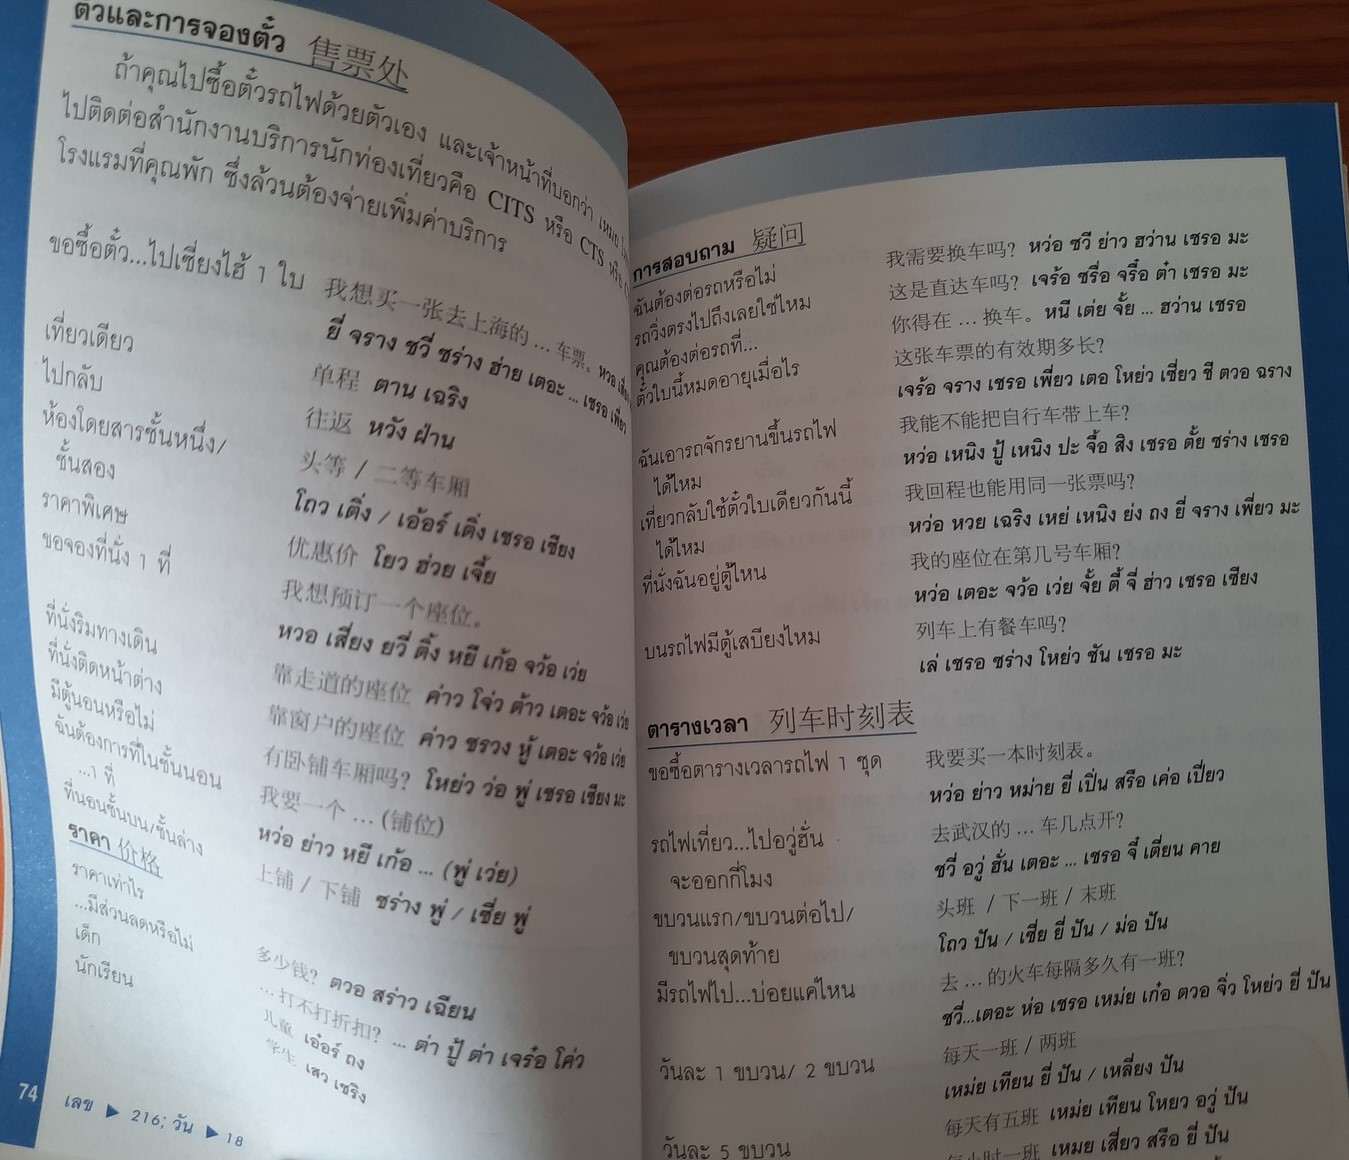 ตั๋วและการจองตั๋ว 售票处
ถ้าคุณไปซื้อตั๋วรถไฟด้วยตัวเอง และเจ้าหน้าที่บอกว่า เหมย
ไปติดต่อสำนักงานบริการนักท่องเที่ยวคือ CITS หรือ CTS หรือ
โรงแรมที่คุณพัก ซึ่งล้วนต้องจ่ายเพิ่มค่าบริการ
ขอซื้อตั๋ว...ไปเซี่ยงไฮ้ 1 ใบ 我想买一张去上海的 ... 车票。 หวอ
ยี่ จราง ชวี่ ซร่าง ฮ่าย เตอะ ... เชรอ เพี่ยว
เที่ยวเดียว 单程 ตาน เฉริง
ไปกลับ 往返 หวัง ฝ่าน
ห้องโดยสารชั้นหนึ่ง/ 头等 / 二等车厢
ชั้นสอง โถว เติ่ง / เอ้อร์ เติ่ง เชรอ เซียง
ราคาพิเศษ 优惠价 โยว ฮ่วย เจี้ย
ขอจองที่นั่ง 1 ที่ 我想预订一个座位。
หวอ เสี่ยง ยวี่ ติ้ง หยี เก้อ จว้อ เว่ย
ที่นั่งริมทางเดิน 靠走道的座位 ค่าว โจ่ว ต้าว เตอะ จว้อ เว่ย
ที่นั่งติดหน้าต่าง 靠窗户的座位 ค่าว ชรวง หู้ เตอะ จว้อ เว่ย
มีตู้นอนหรือไม่ 有卧铺车厢吗? โหย่ว ว่อ พู่ เชรอ เซียง มะ
ฉันต้องการที่ในชั้นนอน 我要一个 ... (铺位)
...1 ที่ หว่อ ย่าว หยี เก้อ ... (พู่ เว่ย)
ที่นอนชั้นบน/ชั้นล่าง 上铺 / 下铺 ซร่าง พู่ / เซี่ย พู่
ราคา 价格
ราคาเท่าไร 多少钱? ตวอ สร่าว เฉียน
...มีส่วนลดหรือไม่ ... 打不打折扣? ... ต่า ปู้ ต่า เจร๋อ โค่ว
เด็ก 儿童 เอ๋อร์ ถง
นักเรียน 学生 เสว เซริง
74
เลข ▶ 216; วัน ▶ 18
การสอบถาม 疑问
ฉันต้องต่อรถหรือไม่ 我需要换车吗? หว่อ ซวี ย่าว ฮว่าน เชรอ มะ
รถวิ่งตรงไปถึงเลยใช่ไหม 这是直达车吗? เจร้อ ซรื่อ จรื๋อ ต๋า เชรอ มะ
คุณต้องต่อรถที่... 你得在 ... 换车。 หนี เต่ย จั้ย ... ฮว่าน เชรอ
ตั๋วใบนี้หมดอายุเมื่อไร 这张车票的有效期多长?
เจร้อ จราง เชรอ เพี่ยว เตอ โหย่ว เซี่ยว ชี ตวอ ฉราง
ฉันเอารถจักรยานขึ้นรถไฟ 我能不能把自行车带上车?
ได้ไหม หว่อ เหนิง ปู้ เหนิง ปะ จื้อ สิง เชรอ ตั้ย ซร่าง เชรอ
เที่ยวกลับใช้ตั๋วใบเดียวกันนี้ 我回程也能用同一张票吗?
ได้ไหม หว่อ หวย เฉริง เหย่ เหนิง ย่ง ถง ยี่ จราง เพี่ยว มะ
ที่นั่งฉันอยู่ตู้ไหน 我的座位在第几号车厢?
หว่อ เตอะ จว้อ เว่ย จั้ย ตี้ จี่ ฮ่าว เชรอ เซียง
บนรถไฟมีตู้เสบียงไหม 列车上有餐车吗?
เล่ เชรอ ซร่าง โหย่ว ชัน เชรอ มะ
ตารางเวลา 列车时刻表
ขอซื้อตารางเวลารถไฟ 1 ชุด 我要买一本时刻表。
หว่อ ย่าว หม่าย ยี่ เปิ่น สรือ เค่อ เปี่ยว
รถไฟเที่ยว...ไปอวู่ฮั่น 去武汉的 ... 车几点开?
จะออกกี่โมง ชวี่ อวู่ ฮั่น เตอะ ... เชรอ จี๋ เตี่ยน คาย
ขบวนแรก/ขบวนต่อไป/ 头班 / 下一班 / 末班
ขบวนสุดท้าย โถว ปัน / เซี่ย ยี่ ปัน / ม่อ ปัน
มีรถไฟไป...บ่อยแค่ไหน 去 ... 的火车每隔多久有一班?
ชวี่...เตอะ ห่อ เชรอ เหม่ย เก๋อ ตวอ จิ่ว โหย่ว ยี่ ปัน
วันละ 1 ขบวน/ 2 ขบวน 每天一班 / 两班
เหม่ย เทียน ยี่ ปัน / เหลี่ยง ปัน
วันละ 5 ขบวน 每天有五班 เหม่ย เทียน โหยว อวู่ ปัน
每小时一班 เหมย เสี่ยว สรือ ยี่ ปัน